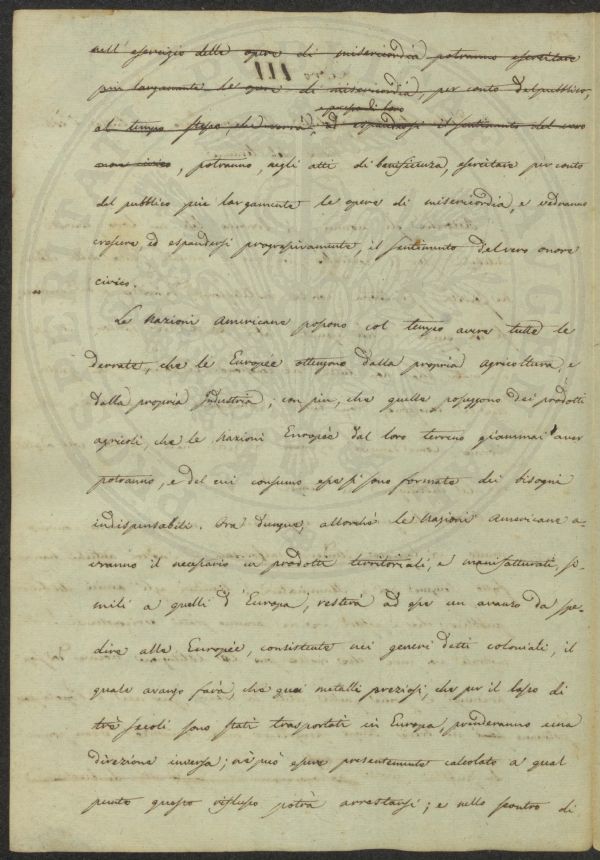 nell' esercizio delle opere di misericordia potranno esercitare
III
più largamente le opere di misericordia, per conto del pubblico,
e presso di loro
al tempo stesso, che verrà, ad espandersi il sentimento del vero
onore civico, potranno, negli atti di beneficenza, esercitare per conto
del pubblico più largamente le opere di misericordia, e vedranno
crescere, ed espandersi progressivamente, il sentimento del vero onore
civico.
Le Nazioni Americane possono col tempo avere tutte le
derrate, che le Europee ottengono dalla propria agricoltura, e
dalla propria industria; con più, che quelle posseggono dei prodotti
agricoli, che le Nazioni Europee dal loro terreno giammai aver
potranno, e del cui consumo esse si sono formate dei bisogni
indispensabili. Ora dunque, allorchè le Nazioni Americane a-
vranno il necessario in prodotti territoriali, e manifatturati, si-
mili a quelli d'Europa, resterà ad esse un avanzo da spe-
dire alle Europee, consistente nei generi detti coloniali, il
quale avanzo farà, che quei metalli preziosi, che per il lasso di
trè secoli sono stati trasportati in Europa, prenderanno una
direzione inversa; nè può essere presentemente calcolato a qual
punto questo riflusso potrà arrestarsi; e nello scontro di